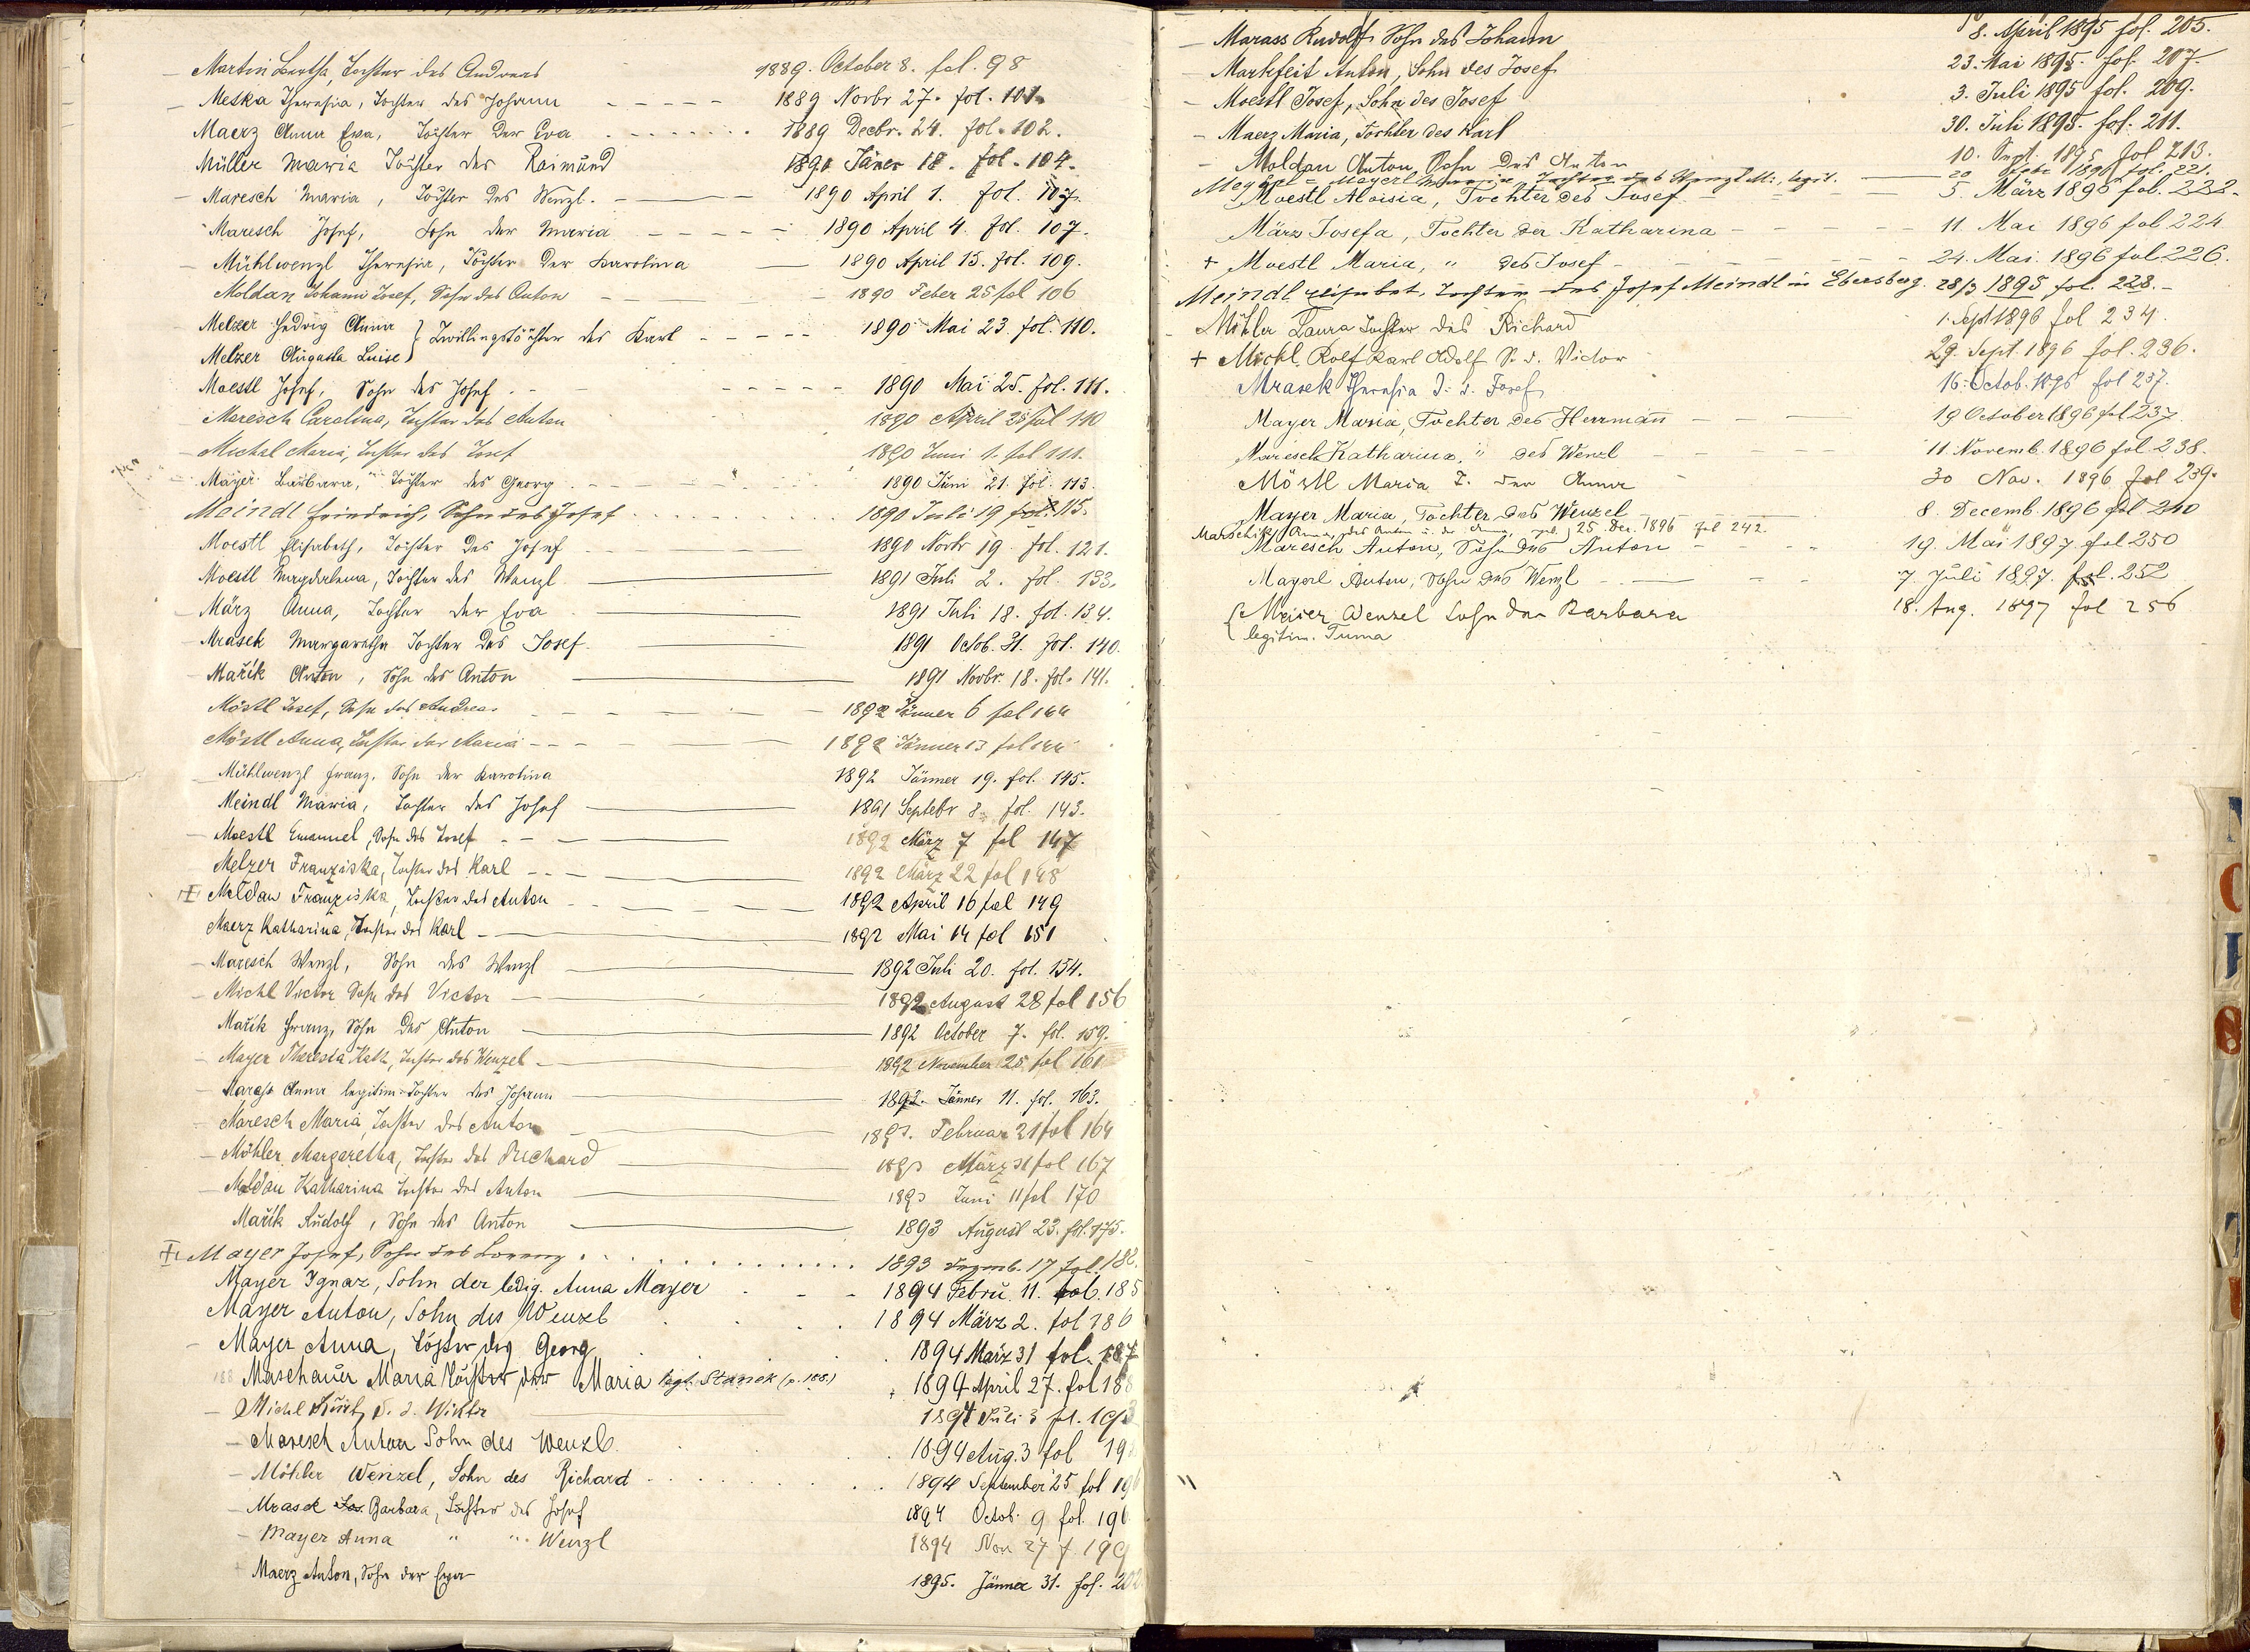 Martin Bertha, Tochter des Andreas 1889. October 8. fol. 98
Meska Theresia, Tochter des Johann 1889 Novbr 27. fol. 101.
Maerz Anna Eva, Tochter der Eva 1889 Decbr. 24. fol. 102.
Müller Maria Tochter des Raimund 1890 Jäner 18. fol. 104.
Maresch Maria, Tochter des Wenzl. 1890 April 1. fol. 107.
Maresch Josef, Sohn der Maria 1890 April 4. fol. 107.
Mühlwenzl Theresia, Tochter der Karolina 1890 April 15. fol. 109.
Moldan Johann Josef, Sohn des Anton 1890 Feber 25 fol 106
Melzer Hedwig Anna } Zwillingstöchter des Karl 1890 Mai 23. fol. 110.
Melzer Augusta Luise }
Moestl Josef, Sohn des Josef 1890 Mai 25. fol. 111.
Maresch Carolina, Tochter des Anton 1890 April 28 fol 110
Michal Maria, Tochter des Josef 1890 Juni 1. fol 111.
Mayer Barbara, Tochter des Georg 1890 Juni 21. fol. 113.
Meindl Friedrich, Sohn des Josef 1890 Juli 19 fol. 115.
Moestl Elisabeth, Tochter des Josef 1890 Novbr 19. fol. 121.
Moestl Magdalena, Tochter des Wenzl 1891 Juli 2. fol. 133.
März Anna, Tochter der Eva 1891 Juli 18. fol. 134.
Mrasek Margaretha Tochter des Josef 1891 Octob. 31. fol. 140.
Mařík Anton, Sohn des Anton 1891 Novbr. 18. fol. 141.
Möstl Josef, Sohn des Andreas 1892 Jänner 6 fol 144
Möstl Anna, Tochter der Maria 1892 Jänner 13 fol 144
Mühlwenzl Franz, Sohn der Karolina 1892 Jänner 19. fol. 145.
Meindl Maria, Tochter des Josef 1891 Septebr 8. fol. 143.
Moestl Emanuel, Sohn des Josef 1892 März 7 fol 147
Melzer Franziska, Tochter des Karl 1892 März 22 fol 148
Moldan Franziska, Tochter des Anton 1892 April 16 fol 149
Maerz Katharina, Tochter des Karl 1892 Mai 14 fol 151
Maresch Wenzl, Sohn des Wenzl 1892 Juli 20. fol. 154.
Michl Victor Sohn des Victor 1892 August 28 fol 156
Mařík Franz, Sohn des Anton 1892 October 7. fol. 159.
Mayer Theresia Kath, Tochter des Wenzel 1892 November 25 fol 161
Marass Anna legitim. Tochter des Johann 1892. Jänner 11. fol. 163.
Maresch Maria, Tochter des Anton 1893. Februar 21 fol 164
Möhler Margaretha, Tochter des Richard 1893 März 31 fol 167
Moldau Katharina Tochter des Anton 1893 Juni 11 fol 170
Mařík Rudolf, Sohn des Anton 1893 August 23. fol. 175.
Mayer Josef, Sohn des Lorenz 1893 Dezemb. 17 fol. 182.
Mayer Ignaz, Sohn der ledig. Anna Mayer 1894 Febru. 11. fol. 185
Mayer Anton, Sohn des Wenzl 1894 März 2. fol 186
Mayer Anna, Tochter des Georg 1894 März 31 fol. 187
188 Maschauer Maria Tochter der Maria legt. Stanek (p. 188.) 1894 April 27. fol 188
Michl Kurt, S. d. Wiktor 1894 Juli 3 fol. 193
Maresch Anton Sohn des Wenzl. 1894 Aug. 3 fol 19
Möhler Wenzel, Sohn des Richard 1894 September 25 fol 196
Mrasek Jos. Barbara, Tochter des Josef 1894 Octob. 9 fol. 196
Mayer Anna " " Wenzl 1894 Nov 27 f. 199
Maerz Anton, Sohn der Eva 1895. Jänner 31. fol. 202
Marass Rudolf Sohn des Johann 8. April 1895 fol. 205.
Markfeit Anton, Sohn des Josef 23. Mai 1895. fol. 207.
Moestl Josef, Sohn des Josef 3. Juli 1895 fol. 209.
Maerz Maria, Tochter des Karl 30. Juli 1895. fol. 211.
Moldan Anton Sohn des Anton 10. Sept. 1895 fol 213.
Mayerl Maria, Tochter des Wenzl M., legit. 20 Febr 1896 fol. 221.
Moestl Aloisia, Tochter des Josef 5. März 1896 fol. 222.
März Josefa, Tochter der Katharina 11. Mai 1896 fol 224
+ Moestl Maria, " des Josef 24. Mai. 1896 fol 226.
Meindl Elisabet, Tochter des Josef Meindl in Ebersberg. 28/3 1895 fol. 228.
Möhler Laura Tochter des Richard 1. Sept 1896 fol 234.
+ Michl, Rolf Karl Adolf S. d. Victor 29. Sept. 1896 fol. 236.
Mrasek Theresia T. d. Josef 16. Octob. 1896 fol 237.
Mayer Maria, Tochter des Herrmann 19 October 1896 fol 237
Maresch Katharina, " des Wenzl 11. Novemb. 1896 fol 238.
Möstl Maria T. der Anna 30 Nov. 1896 fol 239.
Mayer Maria, Tochter des Wenzel 8. Decemb. 1896 fol 240
Marschik Anna, des Anton u. der 25 Dec. 1896 fol 242
Maresch Anton, Sohn des Anton 19. Mai 1897 fol 250
Mayerl Anton, Sohn des Wenzl 7. Juli 1897. fol. 252
Meixer Wenzel Sohn der Barbara 18. Aug. 1897 fol 256
legitim. Tuma